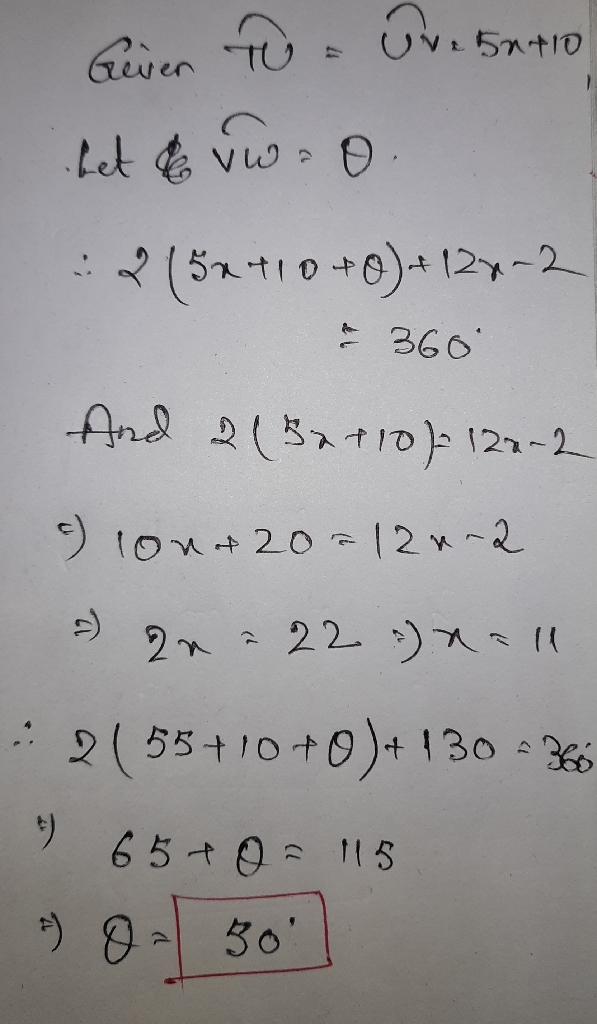 Given TU = UV = 5x+10,
Let VW = θ.
∴ 2(5x+10+θ)+12x-2
= 360°
And 2(5x+10)=12x-2
⇒ 10x+20=12x-2
⇒ 2x = 22 ⇒ x = 11
∴ 2(55+10+θ)+130=360°
⇒ 65+θ=115
⇒ θ= 50°